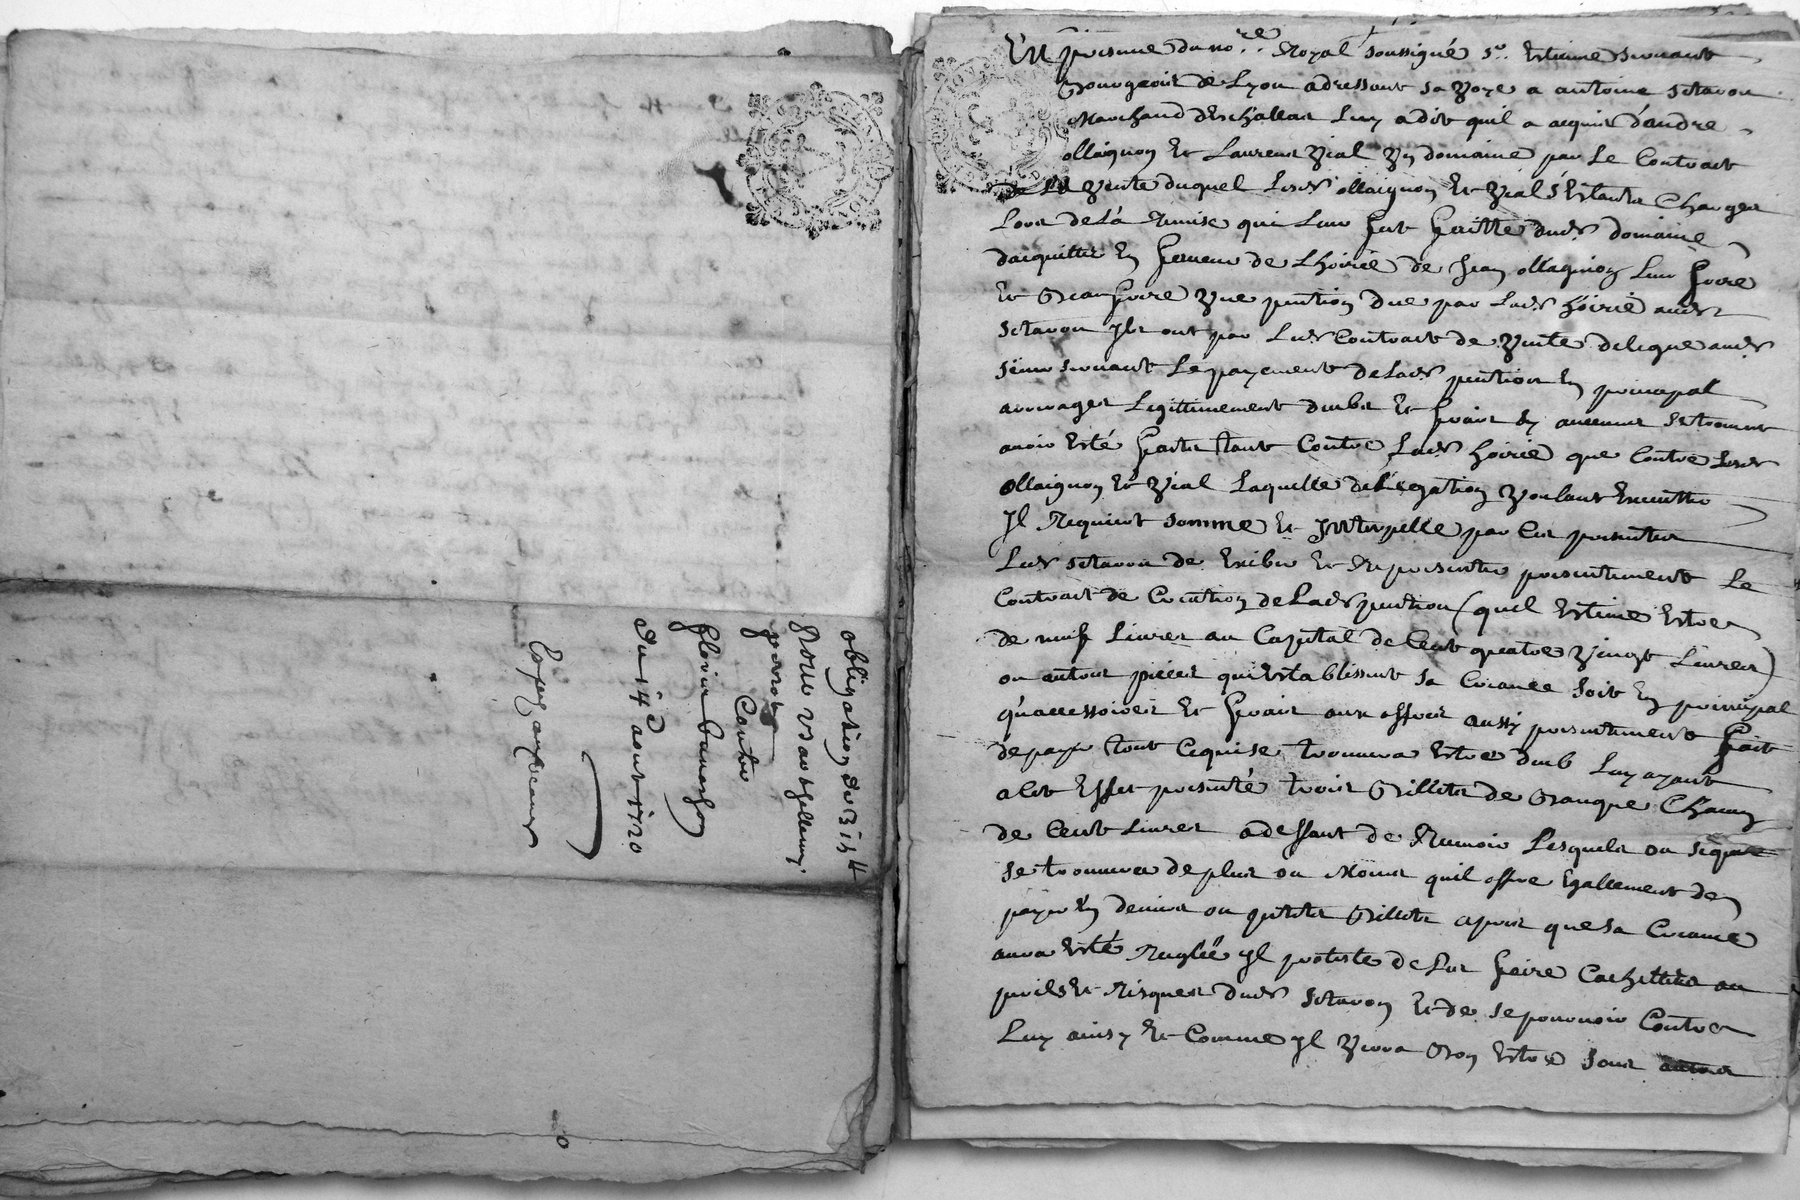 obligation de 315 #
pour
Contre
du 14 aout 1720
En presence du no.re Royal soussigné sr. Estienne
Bourgeois de Lyon adressant sa voye a antoine sitavon
Marchand deschallas Luy a dit quil a acquis d'andre
ollaignon et Laurent vial un domaine par Le Contract
de vente duquel Lesds ollaignon et vial s'estants Charges
Lors de La Remise qui Leur fut faitte dudt domaine
dacquitter en faveur de Lhoirie de Jean ollagnion Leur frere
et Beaufrere une pention due par Ladt hoirie audt
sitavon Ils ont par Ledt Contract de vente delegue audt
sieur Le payement de Ladt pention en principal
arrerages Legittimement dubs et frais sy aucuns se trouvent
avoir esté faits tant Contre Ladt hoirie que Contre Lesds
ollaignon et vial Laquelle delegation voulant Executter
Il Requiert somme et Interpelle par Ces presentes
Ledt sitavon de Exiber et Representer presentement Le
Contract de Creation de Ladt pention (quil Estime Estre
de neuf Livres au Capital de Cent quatre vingt Livres)
ou autres pieces qui Establissent sa Creance soit en principal
qu'accessoires et frais aux offres aussy presentement fait
de payer tout Ce qui se trouvera Estre dub Luy ayant
a Cet Effet presenté trois Billets de Banque Chacun
de Cent Livres a deffaut de Lesquels ou
se trouvera de plus ou Moins quil offre Egallement de
payer en deniers ou petits Billets apres que sa Creance
aura Esté Reglée yl proteste de Les faire Cachetter au
perils et Risques dudt sitavon et de se pourvoir Contre
Luy ainsy et Comme yl verra Bon Estre sans